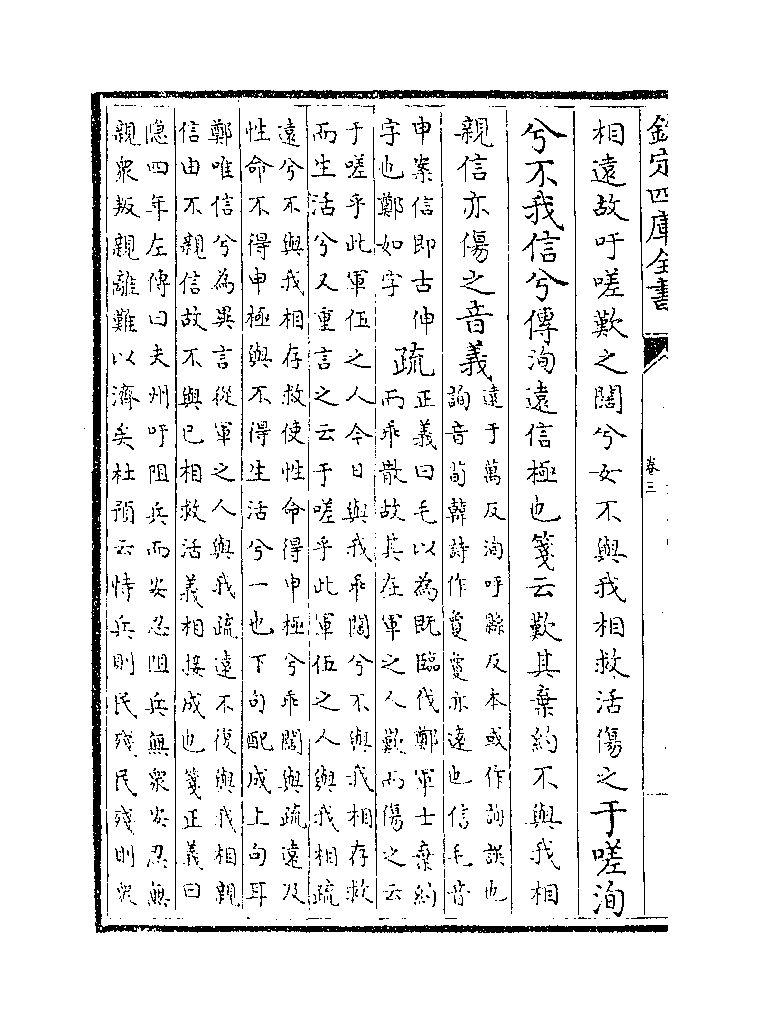 欽定四庫全書
卷三
相遠故吁嗟歎之闊兮女不與我相救活傷之于嗟洵
兮不我信兮傳洵遠信極也箋云歎其棄約不與我相
親信亦傷之音義
遠于萬反洵呼縣反本或作詢誤也
詢音荀韓詩作敻敻亦遠也信毛音
申案信即古伸
字也鄭如字
疏
正義曰毛以為既臨伐鄭軍士棄約
而乖散故其在軍之人歎而傷之云
于嗟乎此軍伍之人今日與我乖闊兮不與我相存救
而生活兮又重言之云于嗟乎此軍伍之人與我相疏
遠兮不與我相存救使性命得申極兮乖闊與疏遠及
性命不得申極與不得生活兮一也下句配成上句耳
鄭唯信兮為異言從軍之人與我疏遠不復與我相親
信由不親信故不與已相救活義相接成也箋正義曰
隱四年左傳曰夫州吁阻兵而安忍阻兵無衆安忍無
親衆叛親離難以濟矣杜預云恃兵則民殘民殘則衆